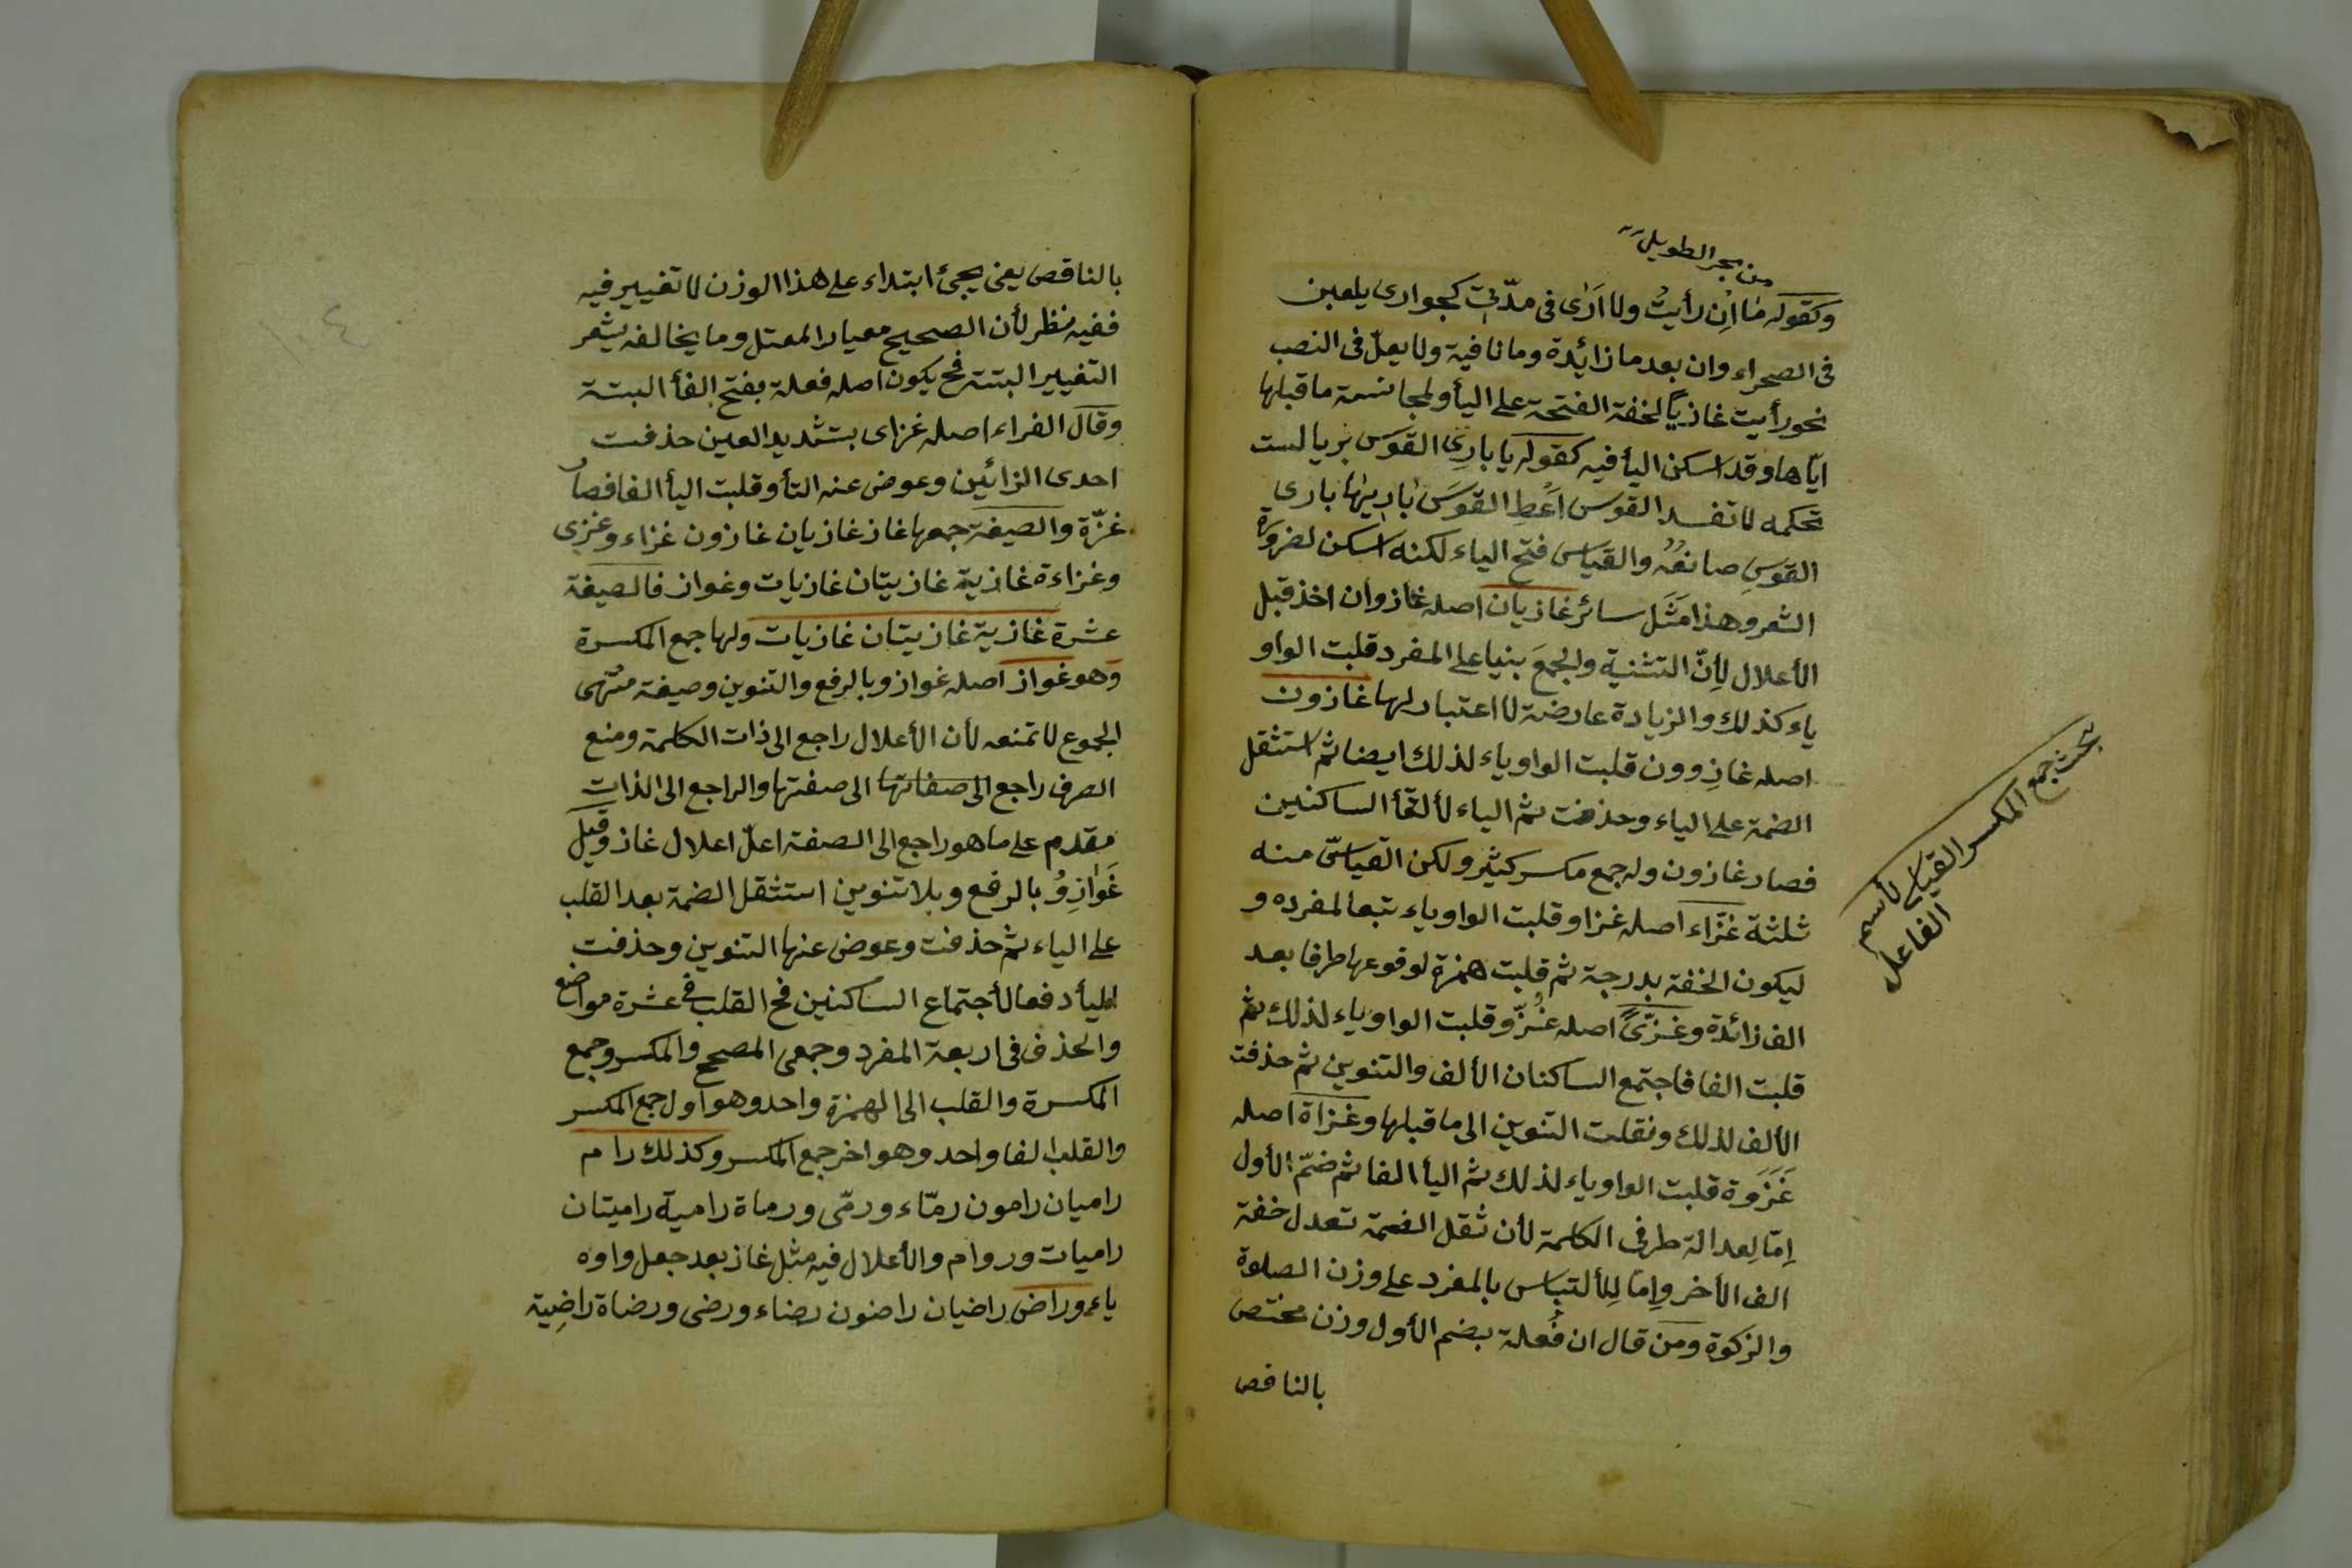 من بحر الطويل
وكقوله ما ان رأيت ولا ارى فى مدّتى كجوارى يلعبن
فى الصحراء وان بعد ما زائدة وما نافية ولا يعلّ فى النصب
نحو رأيت غازيًا لخفة الفتحة على اليأ ولمجانسة ما قبلها
ايّاها وقد اسكن اليأ فيه كقوله يا بارِى القوس بريا لست
تحكمه لا تفسد القوس اَعْطِ القوسَ باريها بارى
القوسِ صانعُهُ والقياس فتح الياء لكنه اسكن لضرورة
الشعر وهذا مَثَل سائر غازيان اصله غازوان اخذ قبل
الأعلال لأِنّ التثنية والجمعَ بنيا على المفرد قلبت الواو
ياء كذلك والزيادة عارضة لا اعتبار لها غازون
اصله غازِوون قلبت الواو ياء لذلك ايضا ثم استثقل
الضمة على الياء وحذفت ثم الياء لألتقأ الساكنين
فصار غازون وله جمع مكسر كثير ولكن القياسّ منه
ثلثة غزّاء اصله غزاو قلبت الواو ياء تبعا لمفرده و
ليكون الخفة بدرجة ثم قلبت همزة لوقوعها طرفا بعد
الف زائدة وغزّىً اصله غُزّو قلبت الواو ياء لذلك ثم
قلبت الفا فاجتمع الساكنان الألف والتنوين ثم حذفت
الألف لذلك ونقلت التنوين الى ما قبلها وغزاة اصله
غَزَوَة قلبت الواو ياء لذلك ثم اليأ الفا ثم ضمّ الأول
اِمّا لِعدالة طرفى الكلمة لأن ثقل الضمة تعدل خفة
الف الأخر وِامّا لِلألتباس بالمفرد على وزن الصلوة
والزكوة ومن قال ان فُعلة بضم الأول وزن مختص
بالناقص
بحث جمع المكسر القياسى لأسم
الفاعل
بالناقص يعنى يجئ ابتداء على هذا الوزن لا تغيير فيه
ففيه نظر لأن الصحيح معيار المعتل وما يخالفه يشعر
التغيير البتة فح يكون اصله فعلة بفتح الفأ البتة
وقال الفراء اصله غزاى بتشديد العين حذفت
احدى الزائين وعوض عنه التأ وقلبت اليأ الفا فصار
غزّة والصيغة جمعها غاز غازيان غازون غزاء وغزى
وغزاءة غازية غازيتان غازيات وغواز فالصيغة
عشرة غازية غازيتان غازيات ولها جمع المكسرة
وهو غواز اصله غوازو بالرفع والتنوين وصيغة منتهى
الجموع لا تمنعه لأن الأعلال راجع الى ذات الكلمة ومنع
الصرف راجع الى صفاتها الى صفتها والراجع الى الذات
مقدم على ما هو راجع الى الصفة اعلّ اعلال غاز وقيل
غَوَازِوُ بالرفع وبلا تنوين استثقل الضمة بعد القلب
على الياء ثم حذفت وعوض عنها التنوين وحذفت
اليأ دفعا لأجتماع الساكنين فح القلب فى عشرة مواضع
والحذف فى اربعة المفرد وجمعى المصحح والمكسر وجمع
المكسرة والقلب الى الهمزة واحد وهو اول جمع المكسر
والقلب الفا واحد وهو اخر جمع المكسر وكذلك رام
راميان رامون رمّاء ورمّى ورماة رامية راميتان
راميات وروام والأعلال فيه مثل غاز بعد جعل واوه
ياء وراض راضيان راضون رضاء ورضى ورضاة راضِية